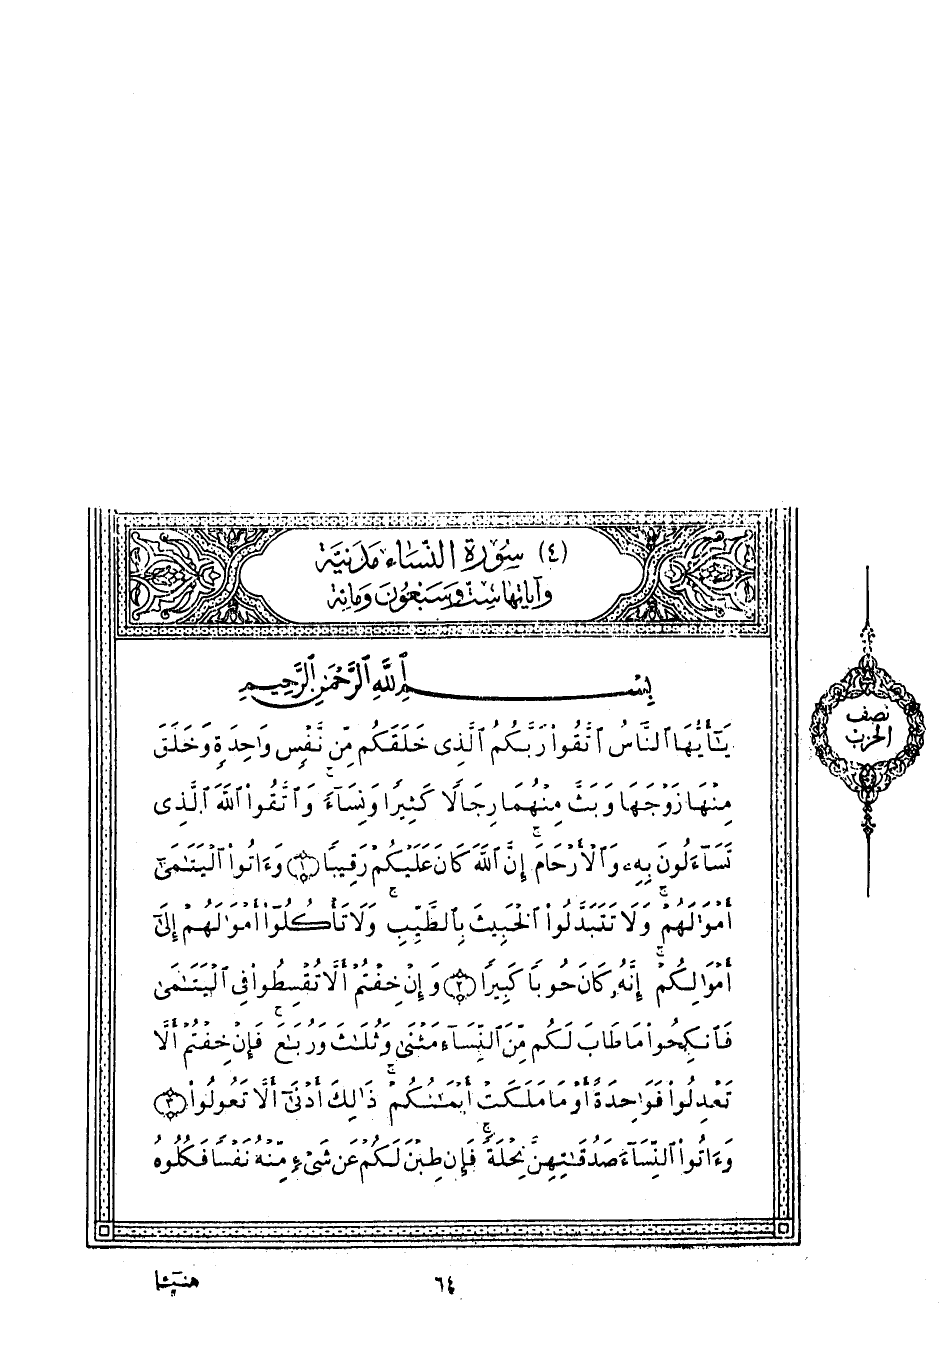 (٤) سُورَة النِّسَاءِ مَدَنيَّة
وَآيَاتُهَا سِتٌّ وَسَبْعُونَ وَمِائة
بِسْمِ اللَّهِ الرَّحْمَٰنِ الرَّحِيمِ
نصف
الحزب
يَـٰٓأَيُّهَا ٱلنَّاسُ ٱتَّقُوا۟ رَبَّكُمُ ٱلَّذِى خَلَقَكُم مِّن نَّفْسٍ وَٰحِدَةٍ وَخَلَقَ
مِنْهَا زَوْجَهَا وَبَثَّ مِنْهُمَا رِجَالًا كَثِيرًا وَنِسَآءً ۚ وَٱتَّقُوا۟ ٱللَّهَ ٱلَّذِى
تَسَآءَلُونَ بِهِۦ وَٱلْأَرْحَامَ ۚ إِنَّ ٱللَّهَ كَانَ عَلَيْكُمْ رَقِيبًا ﴿١﴾ وَءَاتُوا۟ ٱلْيَتَـٰمَىٰٓ
أَمْوَٰلَهُمْ ۖ وَلَا تَتَبَدَّلُوا۟ ٱلْخَبِيثَ بِٱلطَّيِّبِ ۖ وَلَا تَأْكُلُوٓا۟ أَمْوَٰلَهُمْ إِلَىٰٓ
أَمْوَٰلِكُمْ ۚ إِنَّهُۥ كَانَ حُوبًا كَبِيرًا ﴿٢﴾ وَإِنْ خِفْتُمْ أَلَّا تُقْسِطُوا۟ فِى ٱلْيَتَـٰمَىٰ
فَٱنكِحُوا۟ مَا طَابَ لَكُم مِّنَ ٱلنِّسَآءِ مَثْنَىٰ وَثُلَـٰثَ وَرُبَـٰعَ ۖ فَإِنْ خِفْتُمْ أَلَّا
تَعْدِلُوا۟ فَوَٰحِدَةً أَوْ مَا مَلَكَتْ أَيْمَـٰنُكُمْ ۚ ذَٰلِكَ أَدْنَىٰٓ أَلَّا تَعُولُوا۟ ﴿٣﴾
وَءَاتُوا۟ ٱلنِّسَآءَ صَدُقَـٰتِهِنَّ نِحْلَةً ۚ فَإِن طِبْنَ لَكُمْ عَن شَىْءٍ مِّنْهُ نَفْسًا فَكُلُوهُ
٦٤
هنيئا